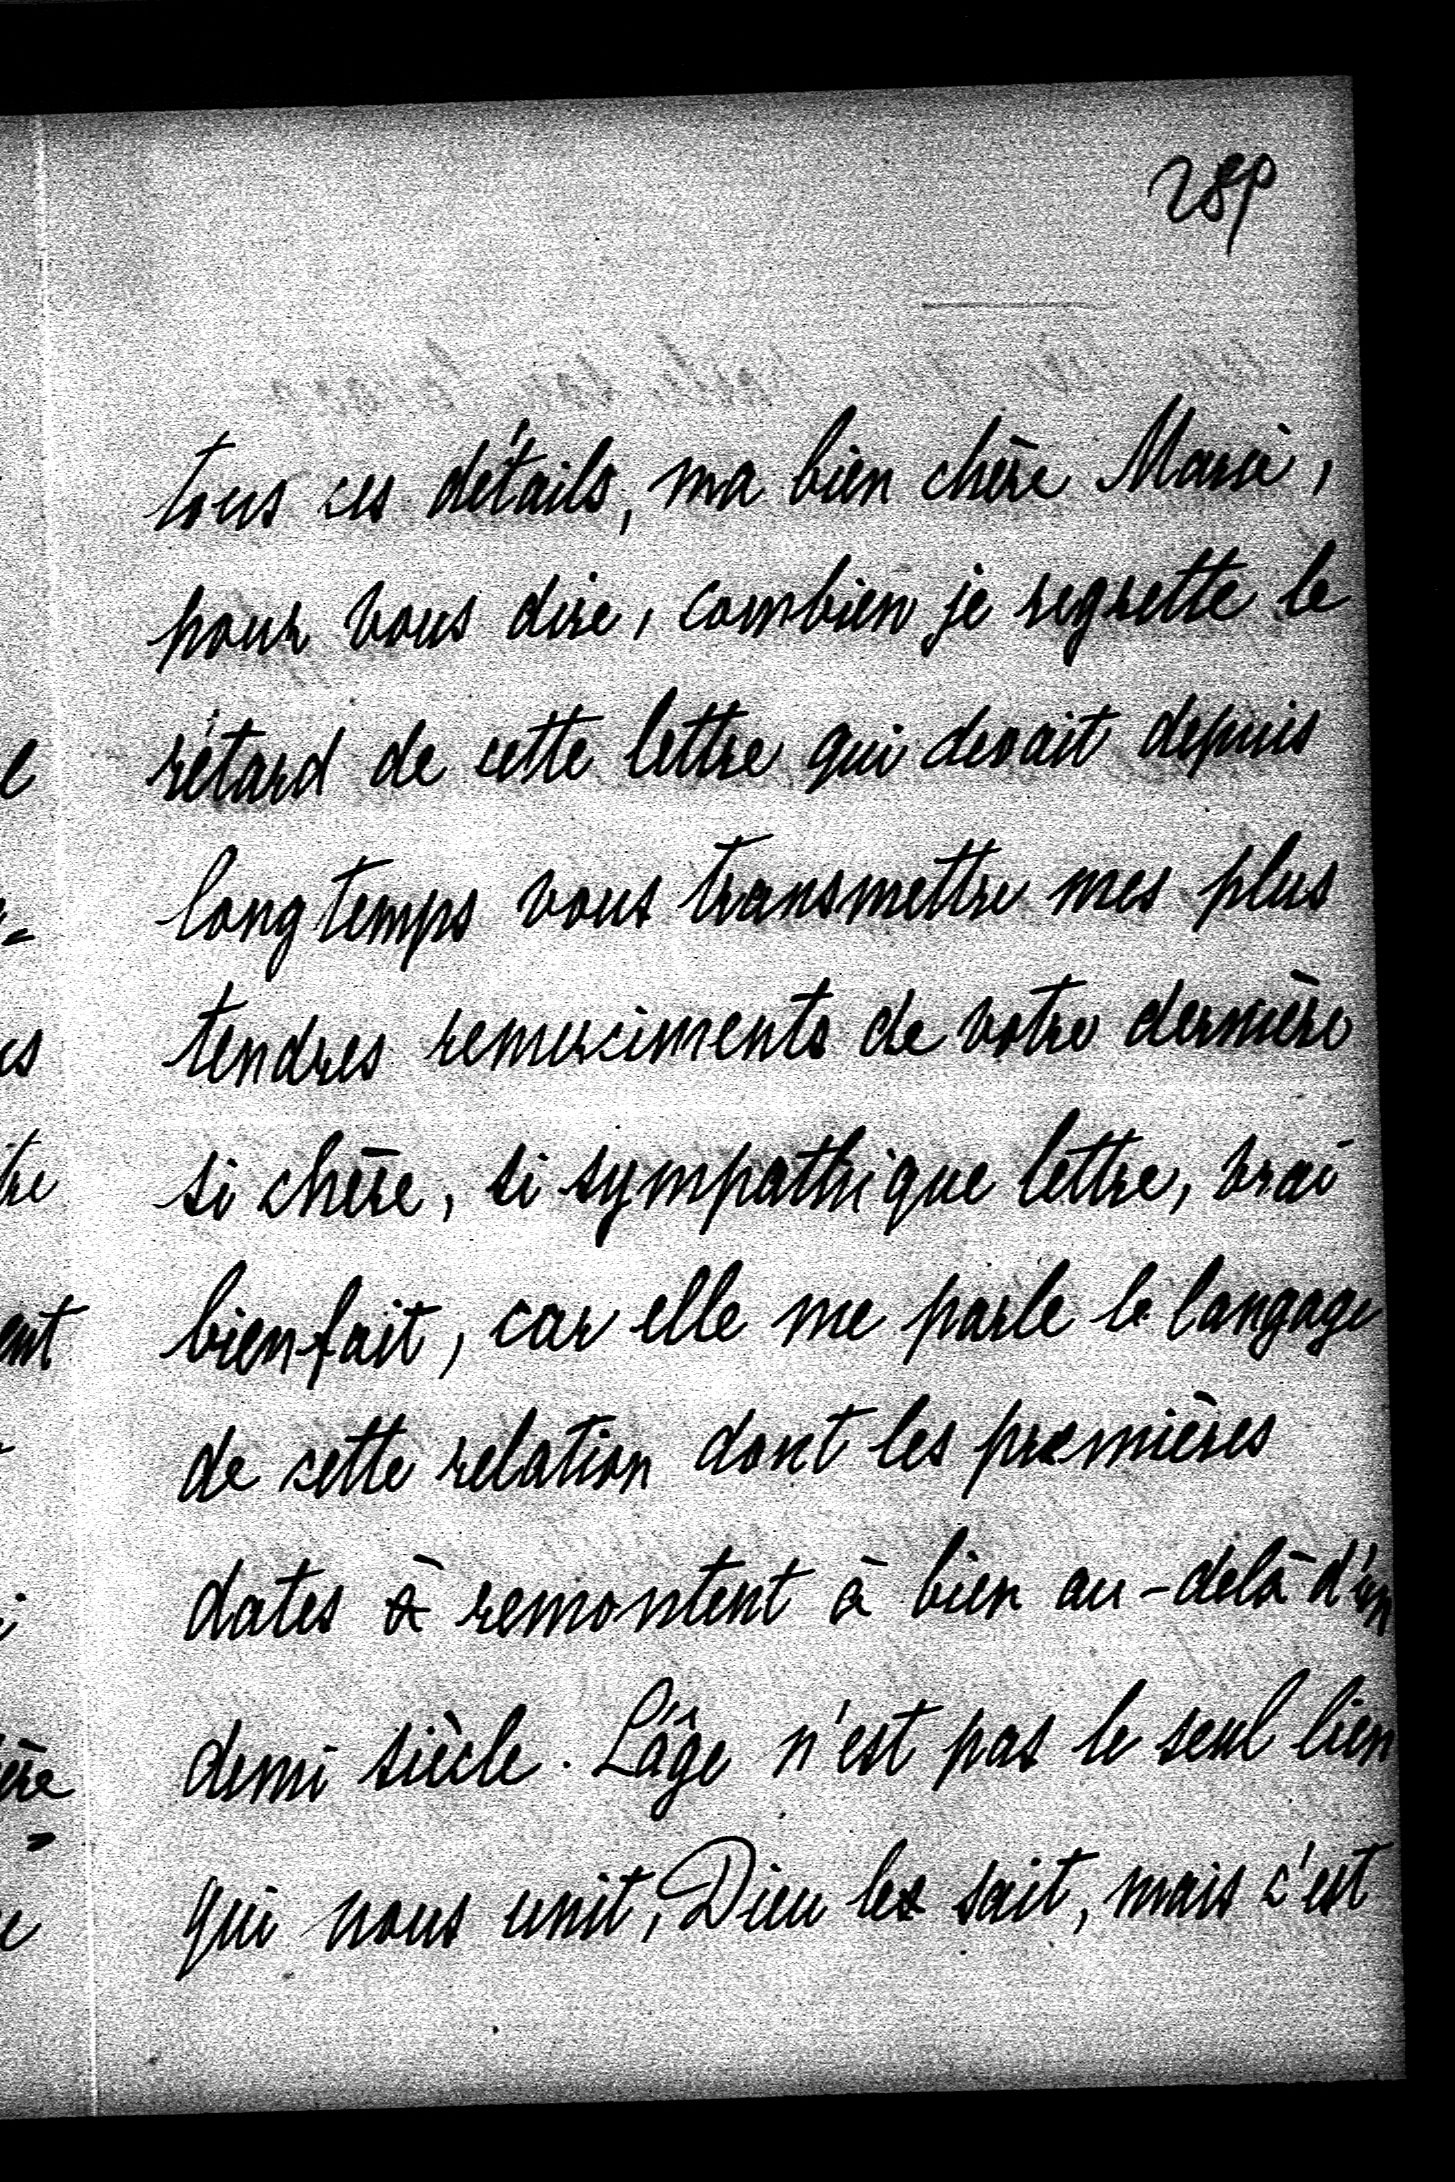 tous ces détails, ma bien chère Marie,
pour vous dire, combien je regrette le
rétard de cette lettre qui devait depuis
longtemps vous transmettre mes plus
tendres remerciments de votre dernière
si chère, si sympathique lettre, vrai
bienfait, car elle me parle le langage
de cette relation dont les premières
dates à remontent à bien au-delà d'un
demi siècle. L'âge n'est pas le seul lien
qui nous unit, Dieu le sait, mais c'est